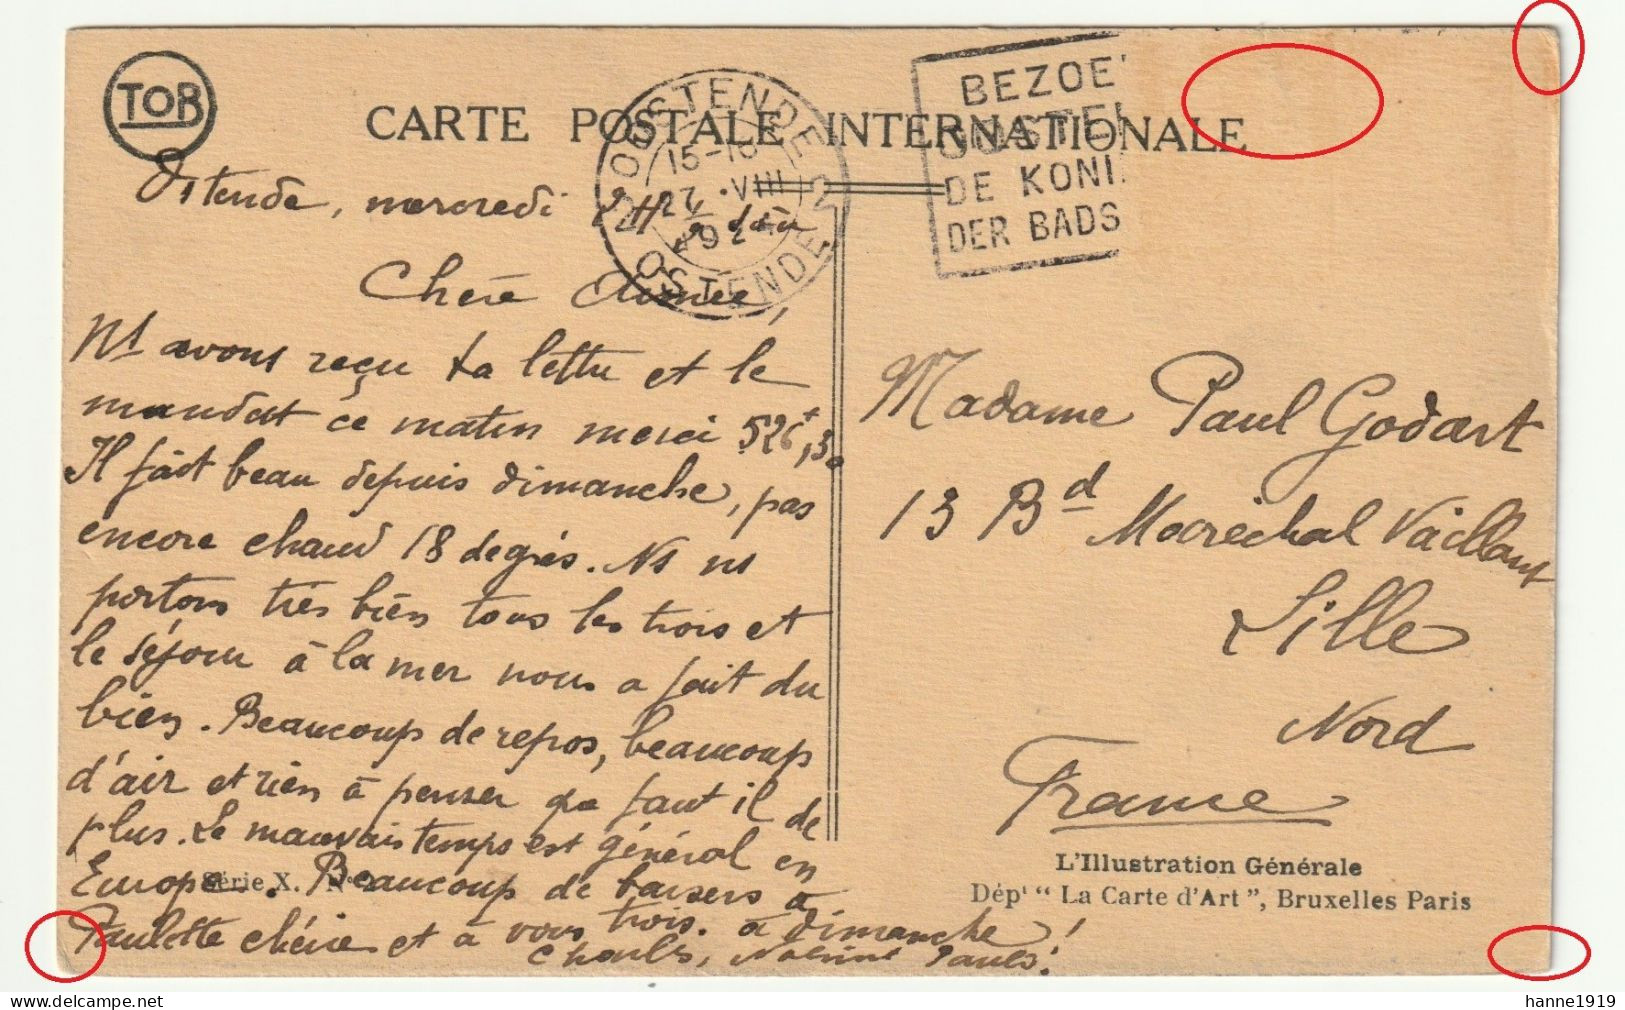 TOB
CARTE POSTALE INTERNATIONALE
OOSTENDE 2 OSTENDE
15-1
27 · VIII
BEZOE
OOSTEN
DE KONI
DER BADS
Ostende, mercredi 27
Chère Aimée,
Ns avons reçu ta lettre et le
mandat ce matin merci 526,30
Il fait beau depuis dimanche, pas
encore chaud 18 degrés. Ns ns
portons très bien tous les trois et
le séjour à la mer nous a fait du
bien. Beaucoup de repos, beaucoup
d'air et rien à penser que faut il de
plus. Le mauvais temps est général en
Europe. Beaucoup de baisers à
Paulette chérie et à vous trois. à dimanche!
Madame Paul Godart
13 Bd Maréchal Vaillant
Lille
Nord
France
Série X. N°
L'Illustration Générale
Dépt “ La Carte d'Art ”, Bruxelles Paris
hanne1919